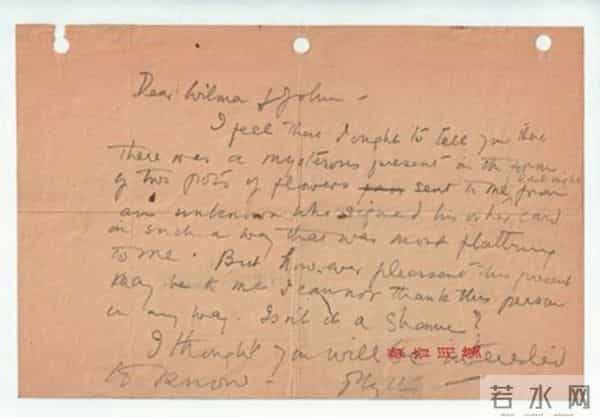 Dear Wilma & John -
I feel that I ought to tell you that
there was a mysterous present in the form
of two pots of flowers sent to me from
last night
an unknown who signed his or her card
in such a way that was most flattering
to me. But however pleasent this present
may be to me I cannot thank this person
in any way. Isn't it a Shame?
I thought you will be interested
to know -
若水网